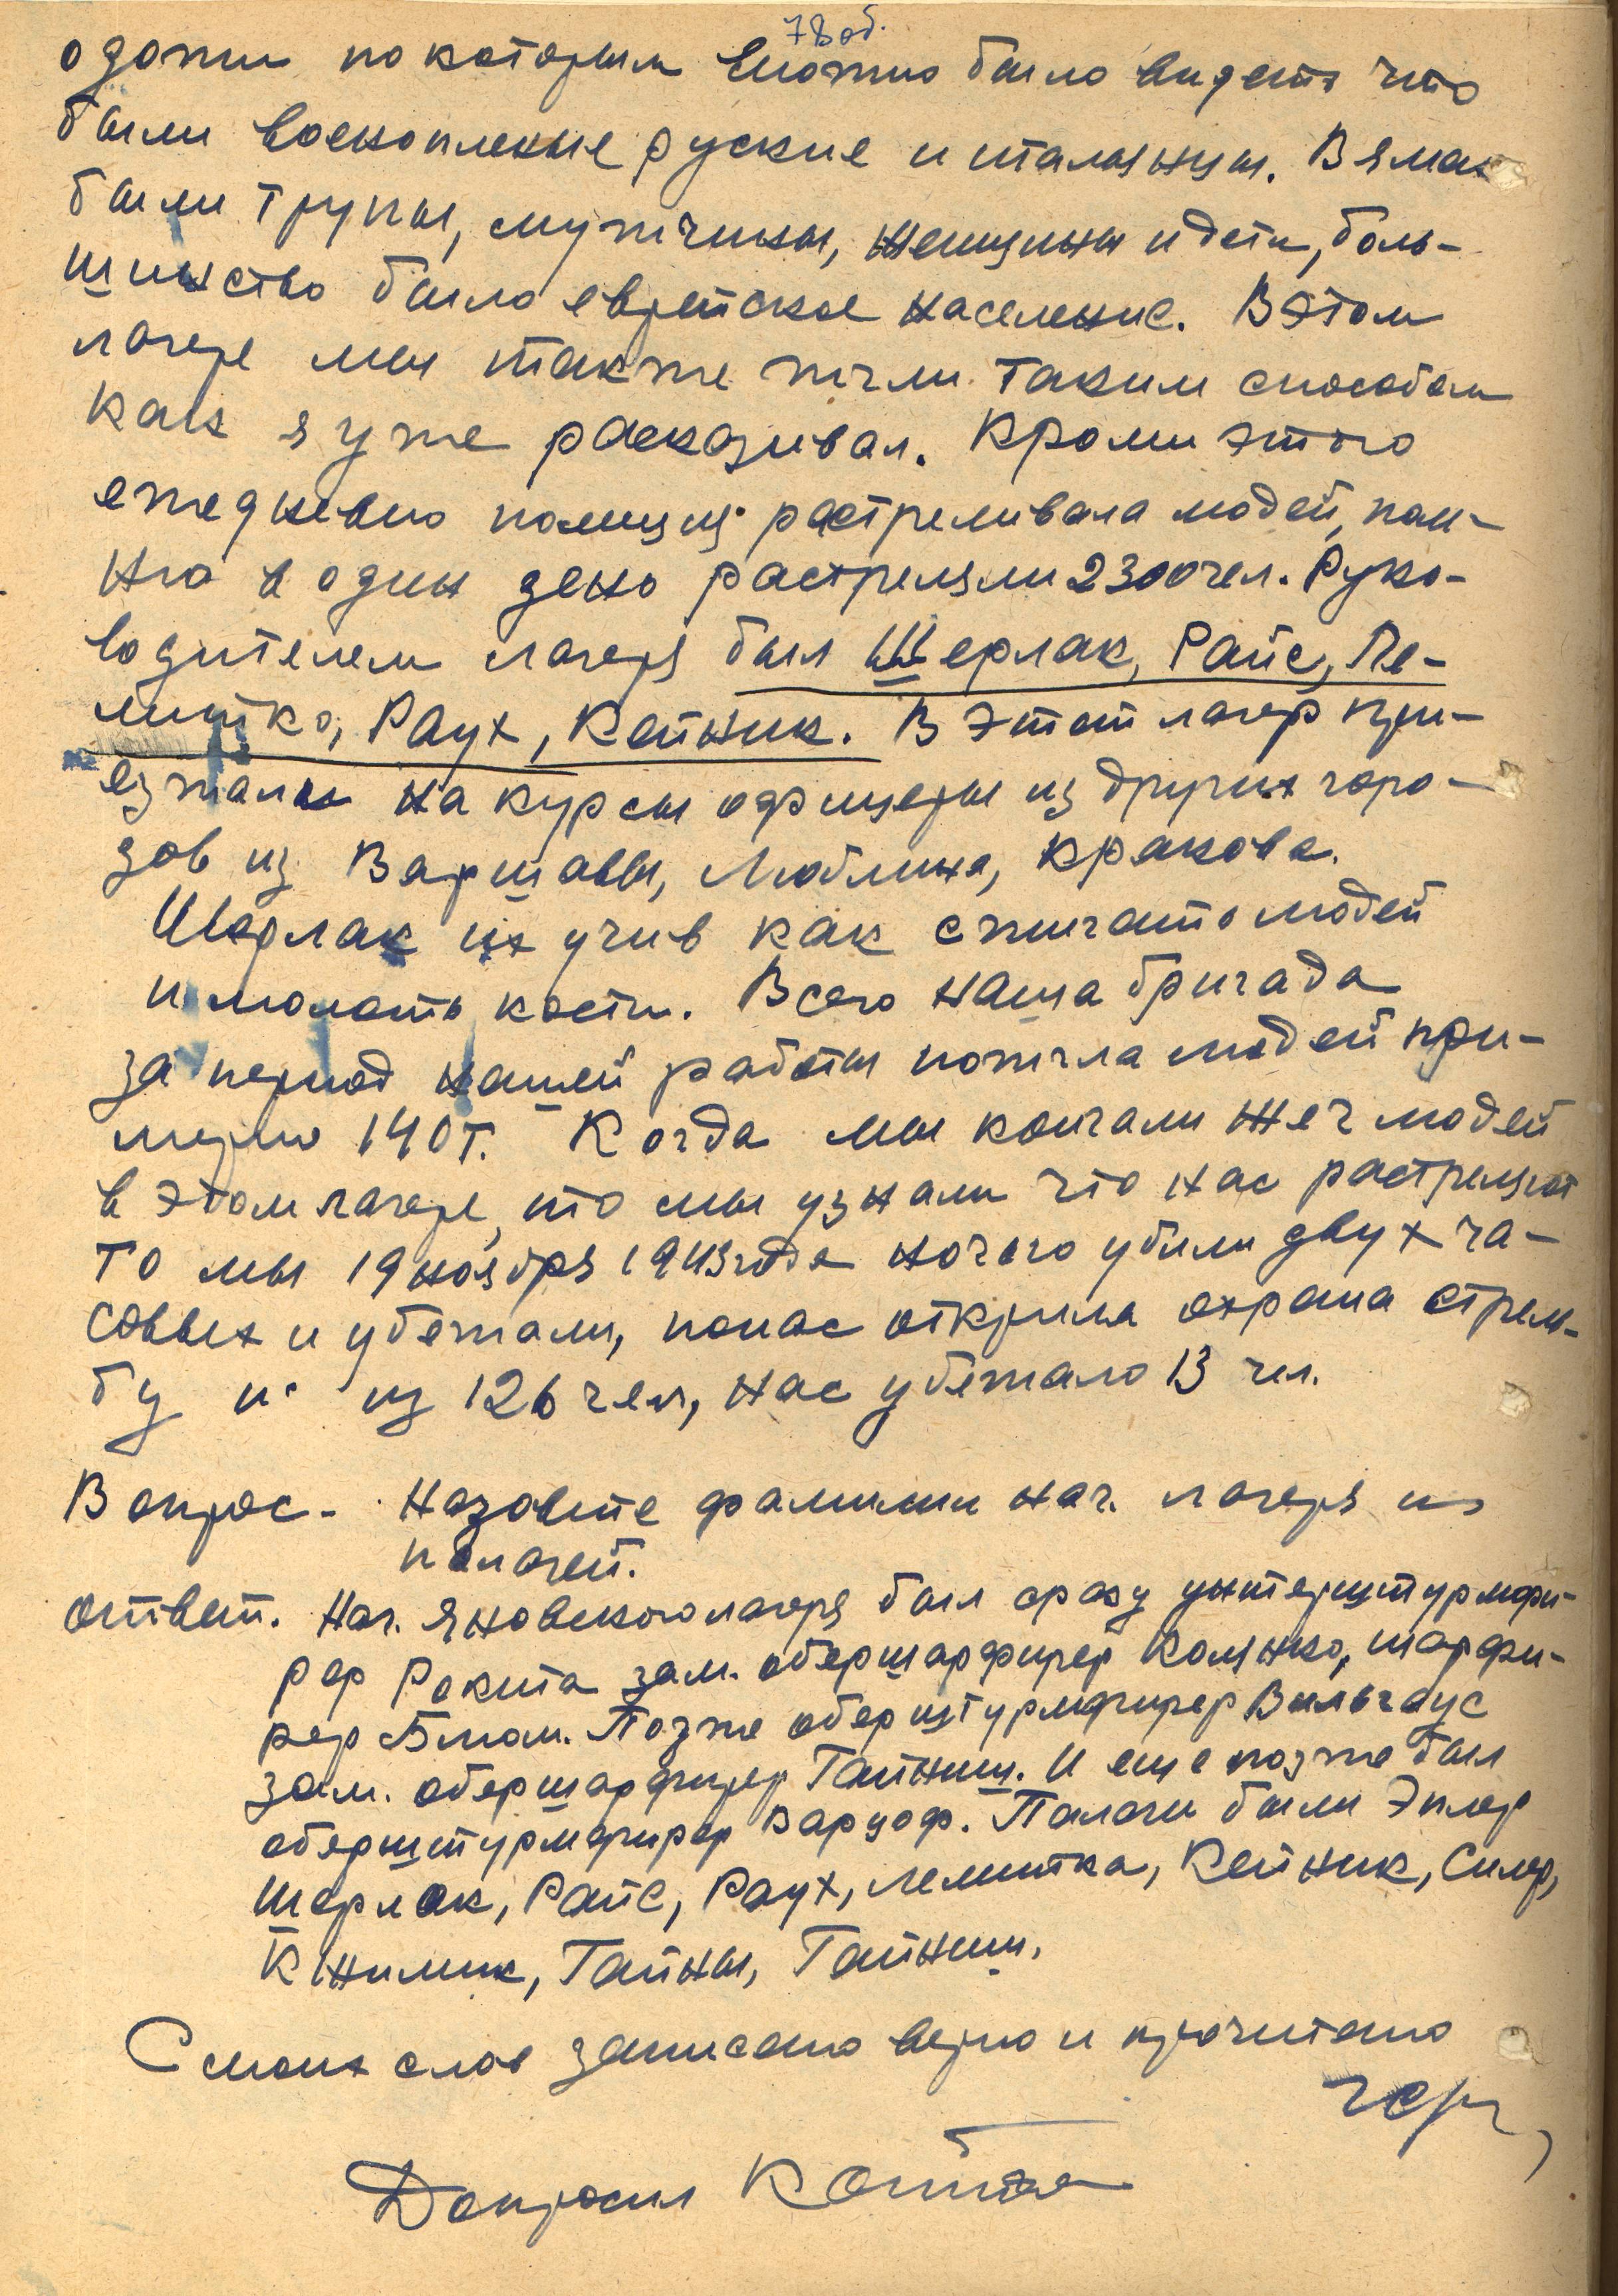 78 об.
одожи по которым можно было видеть что
были военопленые руские и итальянцы. В ямах
были трупы, мужчины, женщины и дети, боль-
шинство было еврейское население. В этом
лагере мы также жгли таким способом
как я уже расказивал. Кроми этого
ежедневно полиция растреливала людей, пом-
ню в один день растреляли 2300 чел. Руко-
водителем лагеря был Шерлак, Райс, Ле-
митко, Раух, Кейник. В этот лагер при-
езжалы на курсы офицеры из других горо-
дов из Варшавы, Люблина, Кракова.
Шерлак их учив как спигать людей
и молоть кости. Всего наша бригада
за период нашей работы пожгла людей при-
мерно 140 т. Когда мы кончали жеч людей
в этом лагере, то мы узнали что нас растреляют
то мы 19 ноября 1943 года ночью убили двух ча-
совых и убежали, по нас открила охрана стрель-
бу и из 126 чел, нас убежало 13 чел.
Вопрос - Назовите фамилии нач. лагеря и
палачей.
Ответ. Нач. Яновского лагеря был сразу унтерштурмфи-
рер Рокита зам. обершарфирер Колянко, шарфи-
рер Блюм. Позже оберштурмфирер Вильгаус
зам. обершарфирер Гайниш. И еще позже был
оберштурмфирер Варцоф. Палачи были Эплер
Шерлак, Райс, Раух, Лемитка, Кейник, Силер,
Книмик, Гайны, Гайниш.
С моих слов записано верно и прочитано
Допросил